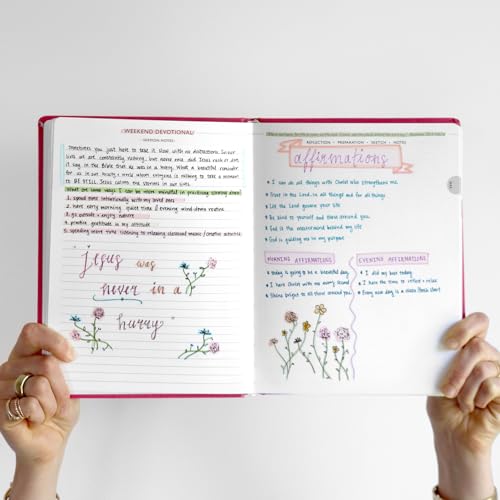 WEEKEND DEVOTIONAL
Sometimes you just have to take it slow, with no distractions. In our
lives we are constantly rushing, but never once did Jesus rush or did
it say in the Bible that he was in a hurry. What a beautiful reminder for
us in our hearts + minds when everyone is rushing to take a moment
to BE STILL. Jesus calms the storms in our lives.
What are some ways I can be more mindful in practicing slowing down
1. spend time intentionally with my loved ones
2. have early morning quiet time & evening wind down routine
3. go outside + enjoy nature
4. practice gratitude in my attitude
5. spending more time listening to relaxing classical music / creative activities
"Jesus was
never in a
hurry"
REFLECTION • PREPARATION • SKETCH • NOTES
affirmations
I can do all things with Christ who strengthens me
Trust in the Lord, in all things and for all things
Let the Lord guide your life
Be kind to yourself and those around you
God is the behind my life
God is guiding me in my purpose
MORNING AFFIRMATIONS
today is going to be a beautiful day
I have Christ with me every second
Shine bright to all those around you
EVENING AFFIRMATIONS
I did my best today
I have the time to reflect + relax
Every new day is a fresh start